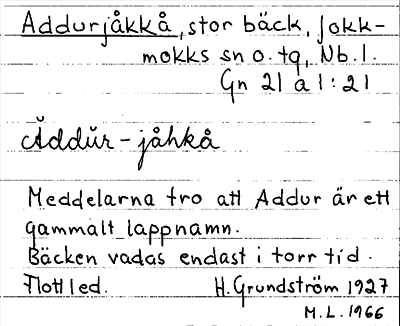 Addurjåkkå, stor bäck, Jokk-
mokks sn o. tg, Nb. l.
Gn 21 a 1:21
Ăddŭr-jåhkå
Meddelarna tro att Addur är ett
gammalt lappnamn.
Bäcken vadas endast i torr tid.
Flottled. H. Grundström 1927
M.L. 1966